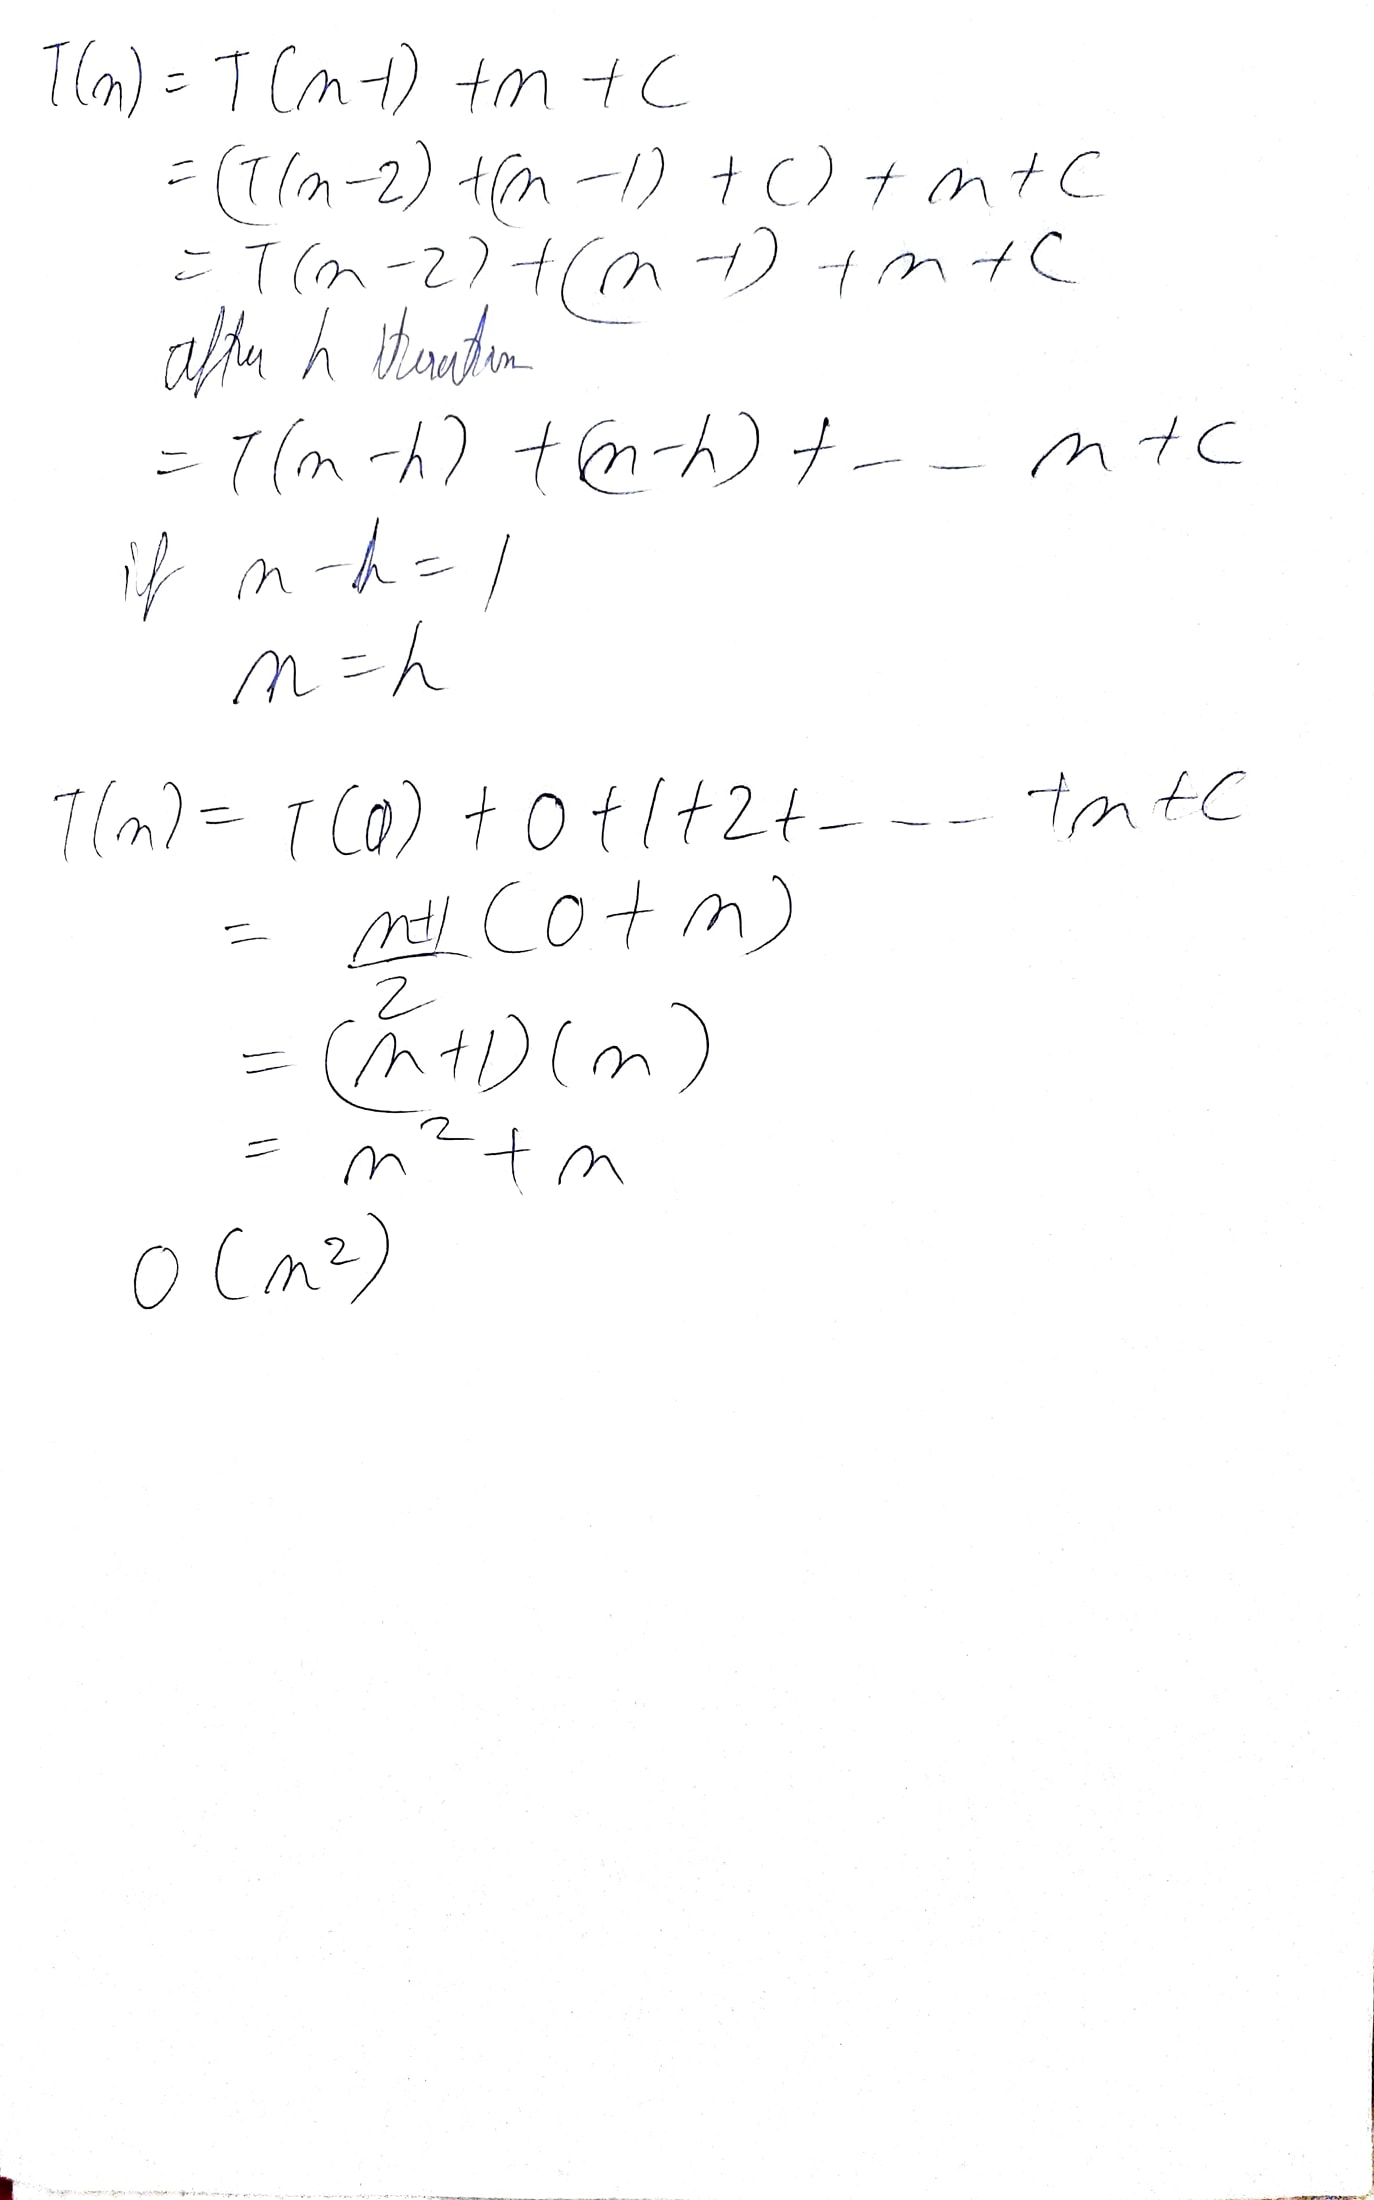 T(n) = T(n-1) + n + C
= (T(n-2) + (n-1) + C) + n + C
= T(n-2) + (n-1) + n + C
after h iteration
= T(n-h) + (n-h) + - - n + C
if n-h = 1
n = h
T(n) = T(0) + 0 + 1 + 2 + - - - + n + C
= n+1/2 (0 + n)
= (n+1)(n)
= n² + n
O(n²)